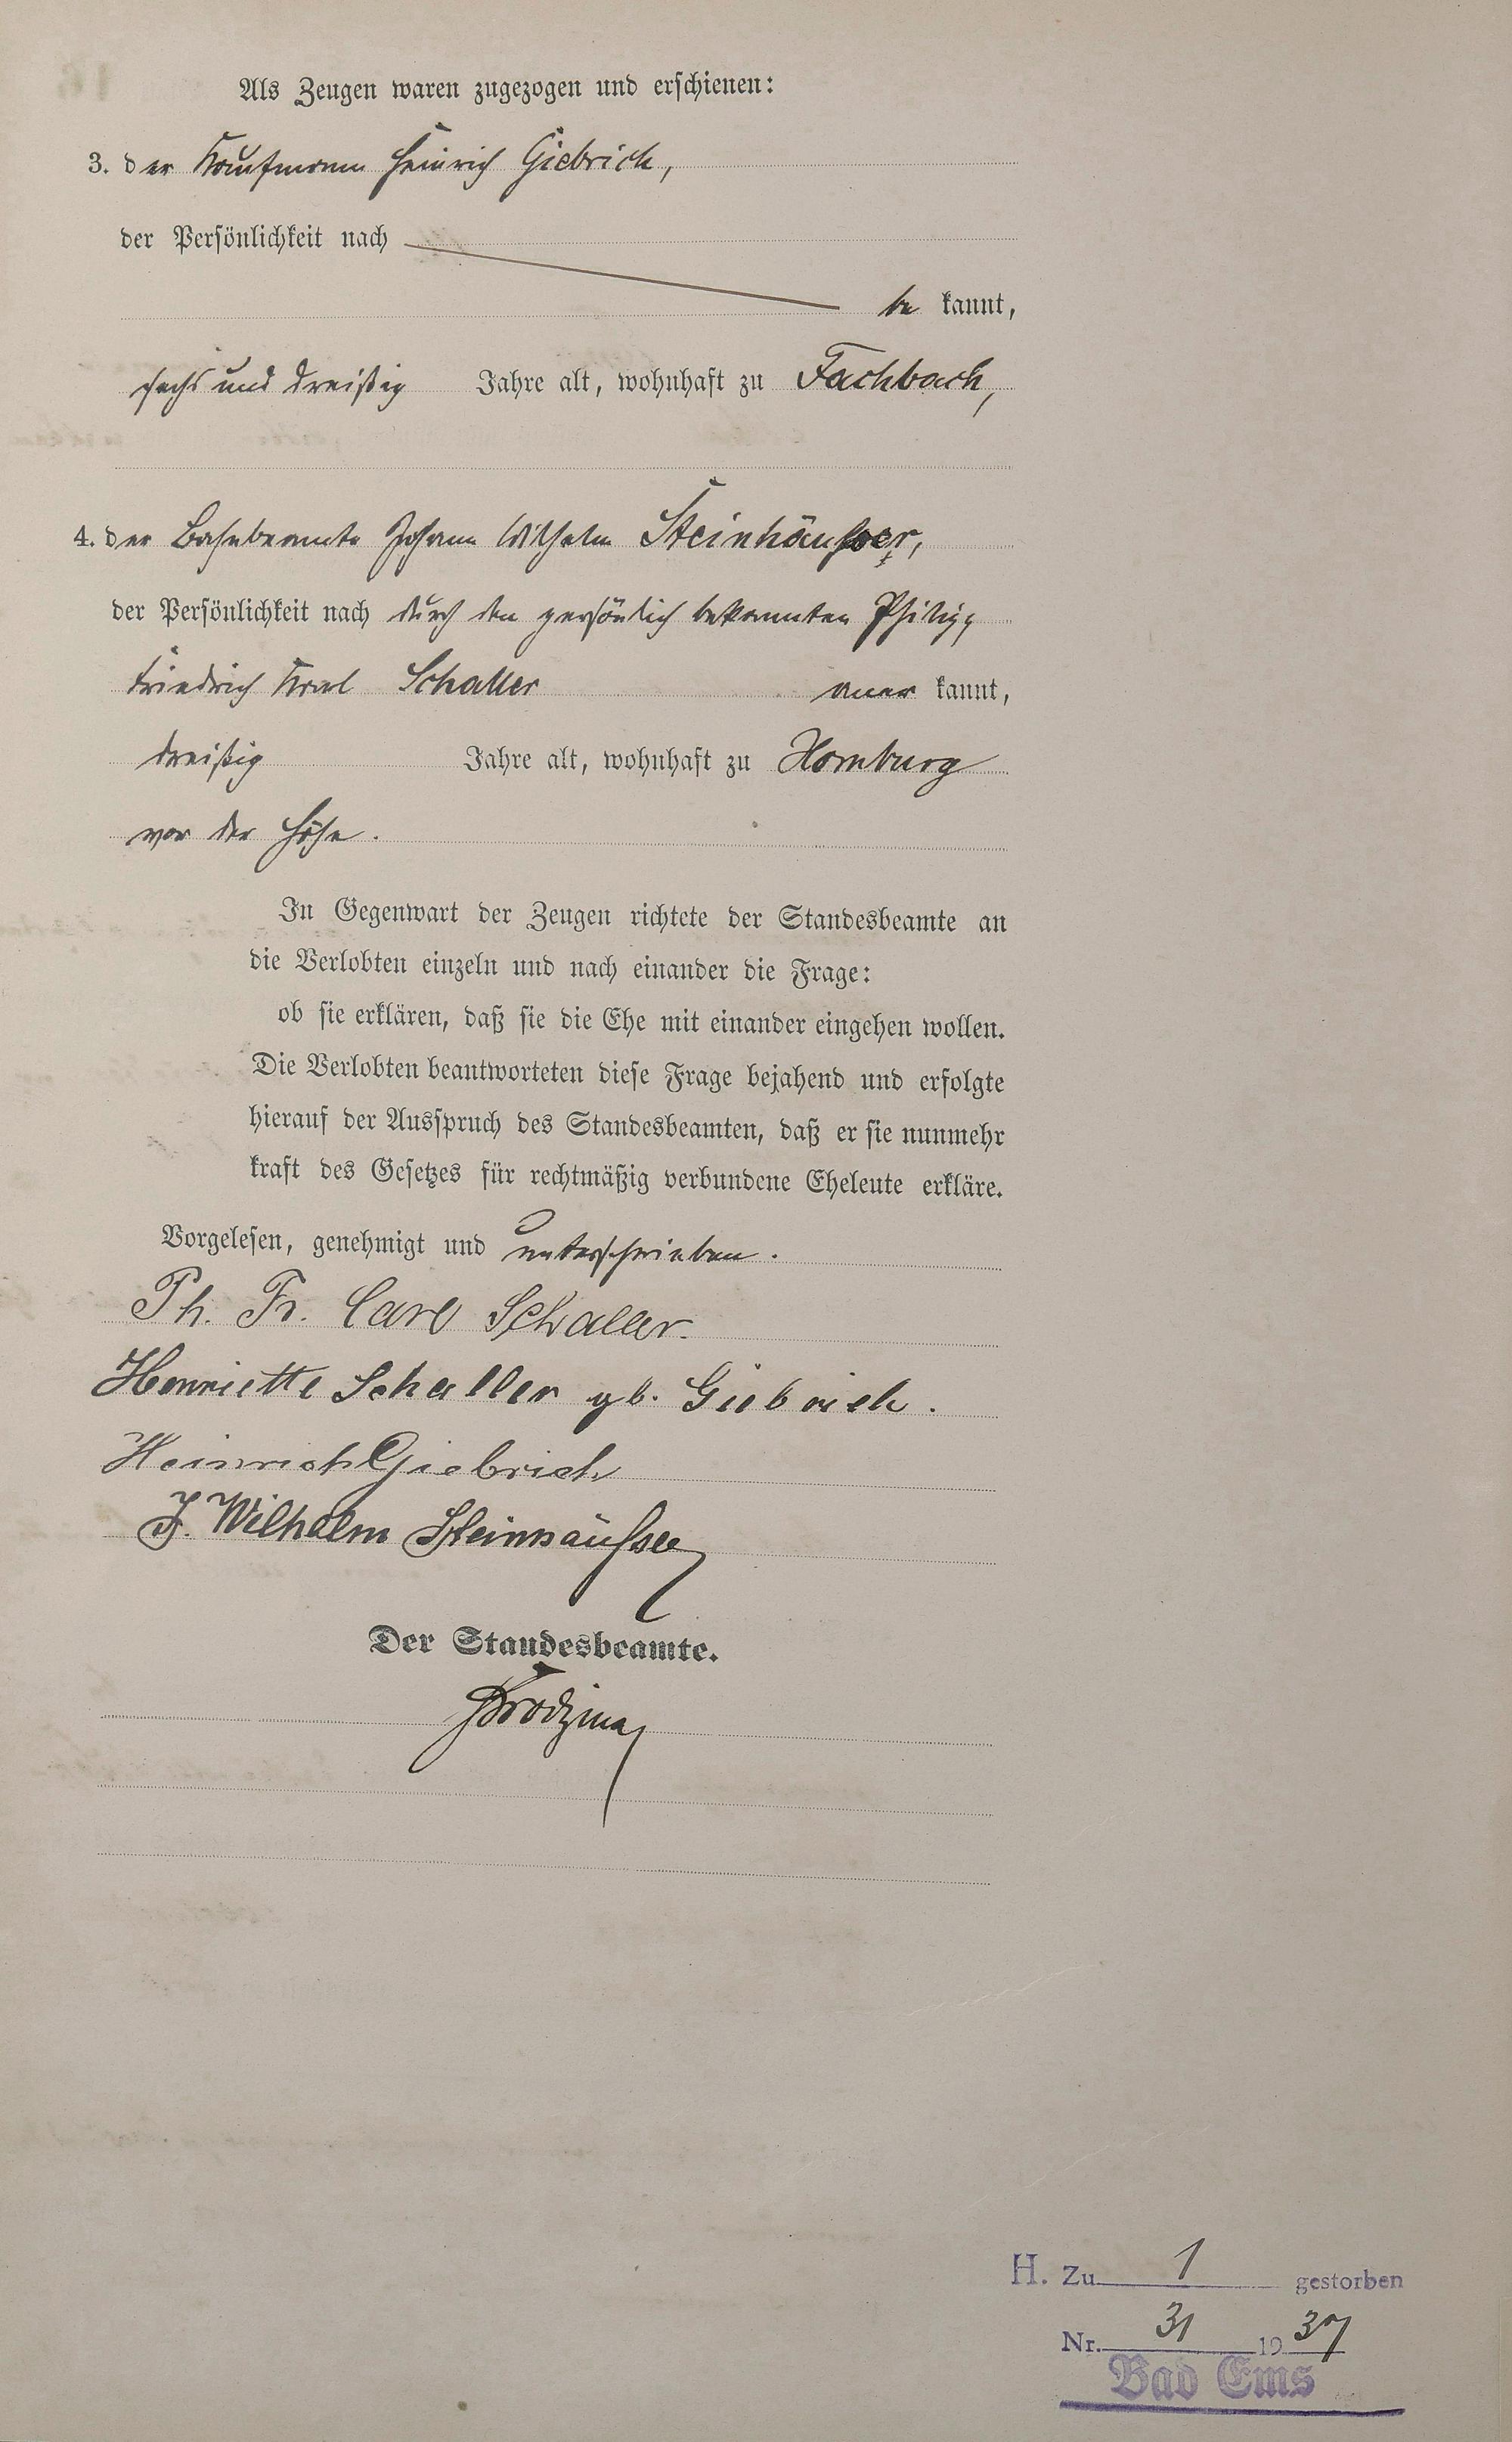 Als Zeugen waren zugezogen und erschienen:
3. der Kaufmann Heinrich Giebrich,
der Persönlichkeit nach
be kannt,
sechs und dreißig Jahre alt, wohnhaft zu Fachbach,
4. der Bahnbeamte Johann Wilhelm Steinhäußer,
der Persönlichkeit nach durch den persönlich bekannten Philipp
Friedrich Karl Schaller aner kannt,
dreißig Jahre alt, wohnhaft zu Homburg
vor der Höhe.
In Gegenwart der Zeugen richtete der Standesbeamte an
die Verlobten einzeln und nach einander die Frage:
ob sie erklären, daß sie die Ehe mit einander eingehen wollen.
Die Verlobten beantworteten diese Frage bejahend und erfolgte
hierauf der Ausspruch des Standesbeamten, daß er sie nunmehr
kraft des Gesetzes für rechtmäßig verbundene Eheleute erkläre.
Vorgelesen, genehmigt und unterschrieben.
Ph. Fr. Carl Schaller.
Henriette Schaller gb. Giebrich.
Heinrich Giebrich
J. Wilhelm Steinhäußer
Der Standesbeamte.
H. Zu 1 gestorben
Nr. 31 1937
Bad Ems